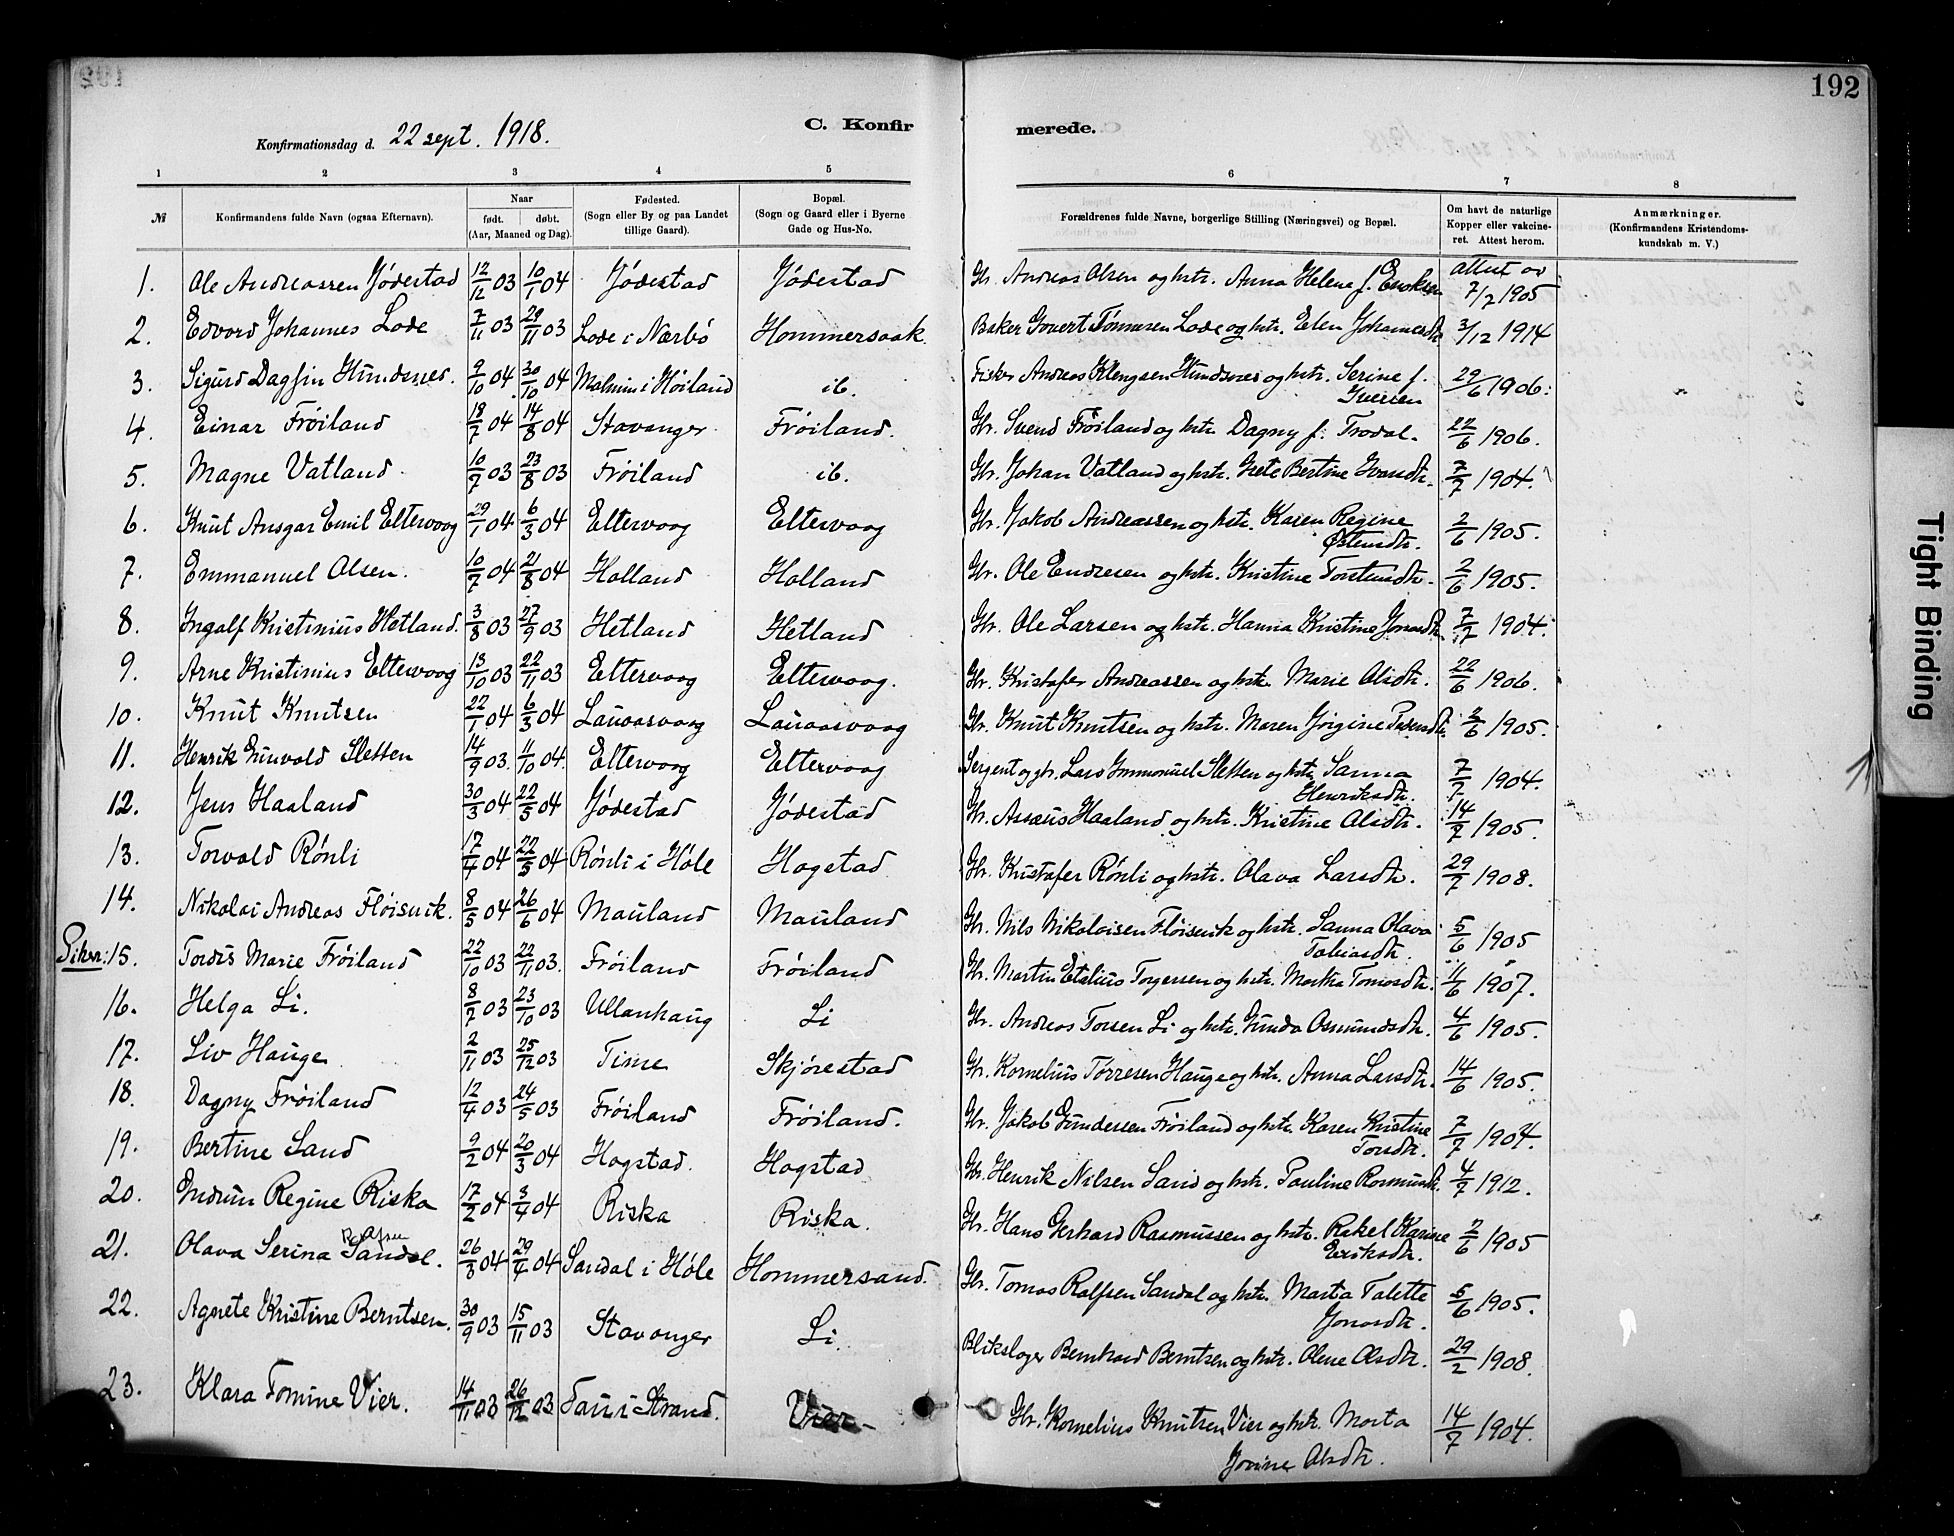 192
C. Konfirmerede.
Konfirmationsdag d. 22 sept. 1918.
1 2 3 4 5 6 7 8
№ Konfirmandens fulde Navn (ogsaa Efternavn). Naar født. døbt. (Aar, Maaned og Dag). Fødested. (Sogn eller By og paa Landet tillige Gaard). Bopæl. (Sogn og Gaard eller i Byerne Gade og Hus-No. Forældrenes fulde Navne, borgerlige Stilling (Næringsvei) og Bopæl. Om havt de naturlige Kopper eller vakcineret. Attest herom. Anmærkninger. (Konfirmandens Kristendomskundskab m. V.)
1. Ole Andreassen Jödestad 12/12 03 10/1 04 Jödestad Jödestad Gbr. Andreas Olsen og hstr. Anna Helene f. attest av 7/2 1905
2. Edvard Johannes Lode 7/11 03 29/11 03 Lode i Nærbö Hommersaak Baker Govert Tönnesen Lode og hstr. Elen Johannesdtr. 3/12 1914
3. Sigurd Dagfin Hundsnes. 9/10 04 30/10 04 Malmin i Höiland ib. Fisker Andreas Klengsen Hundsnes og hstr. Serine f. Iversen 29/6 1906.
4. Einar Fröiland 18/7 04 14/8 04 Stavanger. Fröiland. Gbr. Svend Fröiland og hstr. Dagny f. Trodal. 22/6 1906.
5. Magne Vatland. 10/7 03 23/8 03 Fröiland ib. Gbr. Johan Vatland og hstr. Grete Bertine Ivarsdtr. 7/7 1904.
6. Knut Ansgar Emil Eltervaag 29/1 04 6/3 04 Eltervaag Eltervaag Gbr. Jakob Andreassen og hstr. Karen Regine Østensdtr. 2/6 1905.
7. Emmanuel Olsen. 10/7 04 21/8 04 Holland Holland Gbr. Ole Endresen og hstr. Kristine Torstensdtr. 2/6 1905.
8. Ingolf Kristinius Hetland. 3/8 03 27/9 03 Hetland Hetland Gbr. Ole Larsen og hstr. Hanna Kristine Jonasdtr. 7/7 1904.
9. Arne Kristinius Eltervaag 13/10 03 22/11 03 Eltervaag Eltervaag. Gbr. Kristofer Andreassen og hstr. Marie Olsdtr. 22/6 1906.
10. Knut Knutsen 22/1 04 6/3 04 Lauvaasvaag Lauvaasvaag Gbr. Knut Knutsen og hstr. Maren Jörgine 2/6 1905.
11. Henrik Enevald Sletten 14/9 03. 11/10 04. Eltervaag Eltervaag Sergent og gbr. Lars Immanuel Sletten og hstr. Sanna Henriksdtr. 7/7 1904.
12. Jens Haaland 30/3 04 22/5 04 Jödestad Jödestad Gbr. Assæus Haaland og hstr. Kristine Olsdtr. 14/7 1905.
13. Torvald Rönli 17/4 04 22/5 04 Rönli i Höle Hogstad Gbr. Kristofer Rönli og hstr. Olava Larsdtr. 29/7 1908.
14. Nikolai Andreas Flöisvik. 8/5 04 26/6 04 Mauland Mauland Gbr. Nils Nikolaisen Flöisvik og hstr. Sanna Olava Tobiasdtr. 5/6 1905
Piker: 15. Tordis Marie Fröiland 22/10 03 22/11 03. Fröiland Fröiland Gbr. Martin Etelius Torgersen og hstr. Martha Tomasdtr. 11/6 1907.
16. Helga Li. 8/7 03 23/10 03 Ullanhaug Li Gbr. Andreas Torsen Li og hstr. Gunda Osmundsdtr. 4/6 1905.
17. Liv Hauge 2/11 03 25/12 03 Time Skjörestad Gbr. Kornelius Törresen Hauge og hstr. Anna Larsdtr. 14/6 1905.
18. Dagny Fröiland 12/4 03 24/5 03 Fröiland Fröiland. Gbr. Jakob Gundersen Fröiland og hstr. Karen Kristine Torsdtr. 7/7 1904.
19. Bertine Sand 9/2 04 20/3 04 Hogstad. Hogstad Gbr. Henrik Nilsen Sand og hstr. Pauline Rasmusdtr. 4/7 1912.
20. Gudrun Regine Riska 17/2 04 3/4 04 Riska Riska. Gbr. Hans Gerhard Rasmussen og hstr. Rakel Karine Eriksdtr. 2/6 1905
21. Olava Serina Sandal. 26/3 04 29/4 04 Sandal i Höle Hommersand. Gbr. Tomas Rolfsen Sandal og hstr. Marta Talette Jonasdtr. 5/6 1905.
22. Agnete Kristine Berntsen. 30/9 03 15/11 03 Stavanger Li. Blikslager Bernhard Berntsen og hstr. Olene Olsdtr. 29/2 1908.
23. Klara Tomine Vier. 14/11 03 26/12 03 Tau i Strand. Vier Gbr. Kornelius Knutsen Vier og hstr. Marta Jonine Olsdtr. 14/7 1904.
Tight Binding